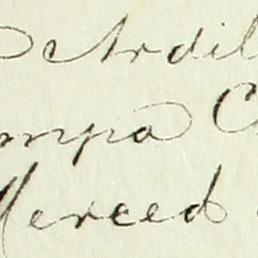 Ardil
ompa C
Merced